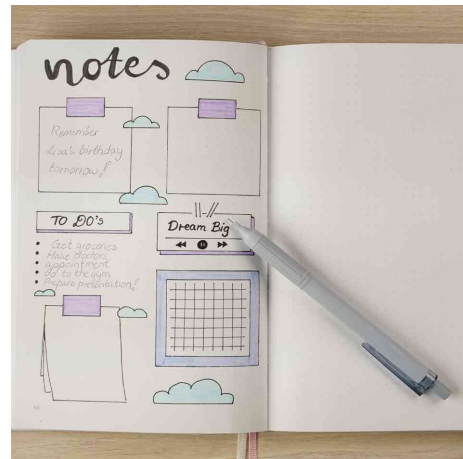 notes
Remember
Lisa's birthday
tomorrow!
TO DO's
Get groceries
Make doctors
appointment
Go to the gym
Prepare presentation!
Dream Big